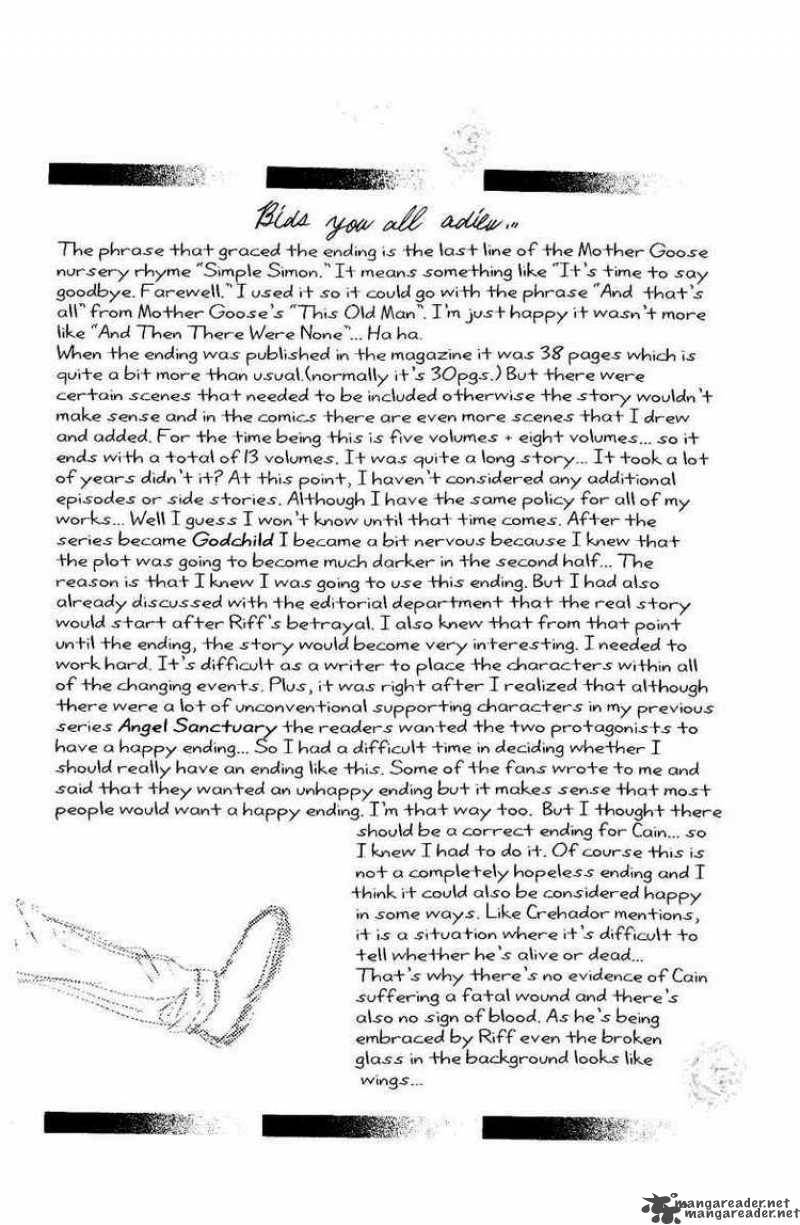 Bids you all adieu...
The phrase that graced the ending is the last line of the Mother Goose
nursery rhyme "Simple Simon." It means something like "It's time to say
goodbye. Farewell." I used it so it could go with the phrase "And that's
all" from Mother Goose's "This Old Man". I'm just happy it wasn't more
like "And Then There Were None"... Ha ha.
When the ending was published in the magazine it was 38 pages which is
quite a bit more than usual.(normally it's 30pgs.) But there were
certain scenes that needed to be included otherwise the story wouldn't
make sense and in the comics there are even more scenes that I drew
and added. For the time being this is five volumes + eight volumes... so it
ends with a total of 13 volumes. It was quite a long story... It took a lot
of years didn't it? At this point, I haven't considered any additional
episodes or side stories. Although I have the same policy for all of my
works... Well I guess I won't know until that time comes. After the
series became Godchild I became a bit nervous because I knew that
the plot was going to become much darker in the second half... The
reason is that I knew I was going to use this ending. But I had also
already discussed with the editorial department that the real story
would start after Riff's betrayal. I also knew that from that point
until the ending, the story would become very interesting. I needed to
work hard. It's difficult as a writer to place the characters within all
of the changing events. Plus, it was right after I realized that although
there were a lot of unconventional supporting characters in my previous
series Angel Sanctuary the readers wanted the two protagonists to
have a happy ending... So I had a difficult time in deciding whether I
should really have an ending like this. Some of the fans wrote to me and
said that they wanted an unhappy ending but it makes sense that most
people would want a happy ending. I'm that way too. But I thought there
should be a correct ending for Cain... so
I knew I had to do it. Of course this is
not a completely hopeless ending and I
think it could also be considered happy
in some ways. Like Crehador mentions,
it is a situation where it's difficult to
tell whether he's alive or dead...
That's why there's no evidence of Cain
suffering a fatal wound and there's
also no sign of blood. As he's being
embraced by Riff even the broken
glass in the background looks like
wings...
mangareader.net
mangareader.net